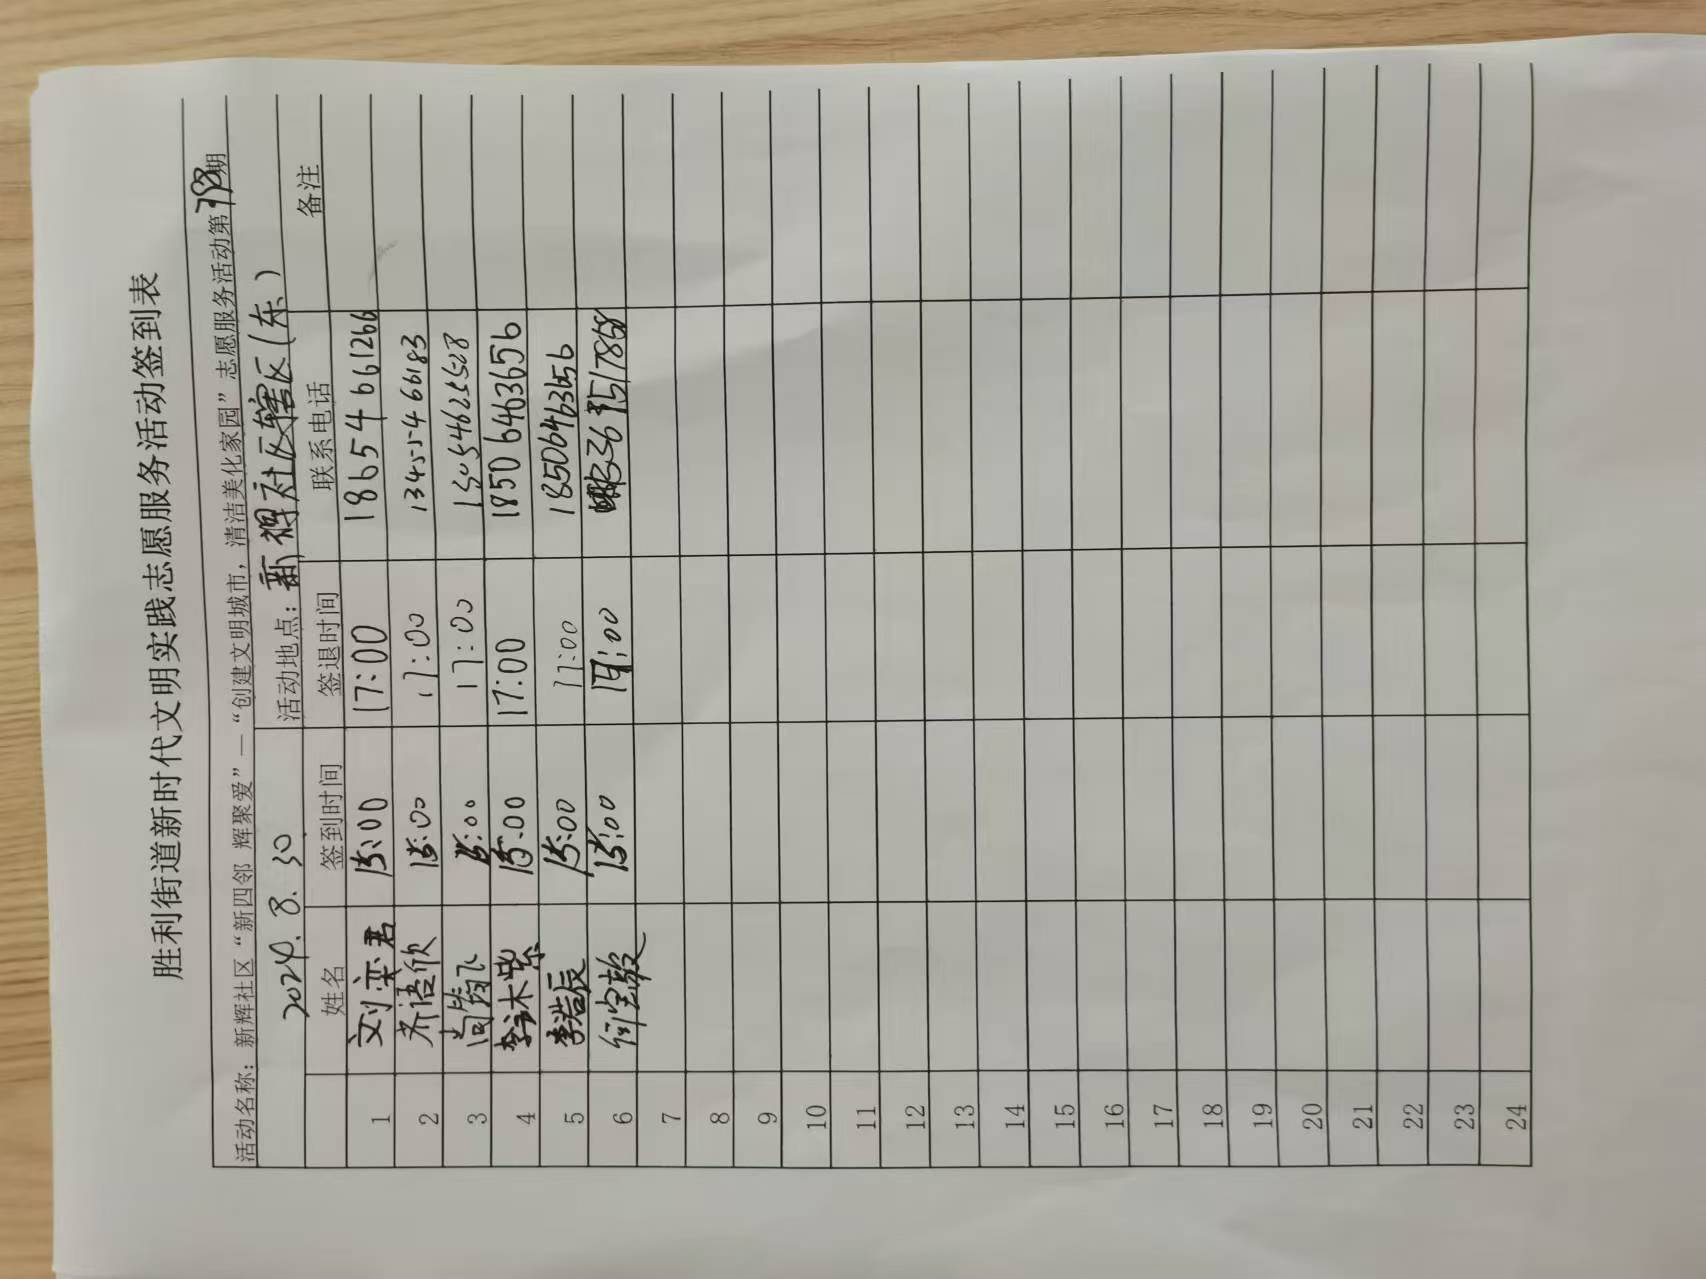 胜利街道新时代文明实践志愿服务活动签到表
活动名称：新辉社区“新四邻 辉聚爱”—“创建文明城市，清洁美化家园”志愿服务活动第 期
2024.8.30 活动地点： 社区辖区(东)
姓名 签到时间 签退时间 联系电话 备注
1 刘奕君 15:00 17:00 18654661266
2 齐语欣 15:00 17:00 13455466183
3 15:00 17:00 15054625528
4 李沐紫 15:00 17:00 18506463656
5 李浩辰 15:00 17:00 18506463656
6 15:00
7
8
9
10
11
12
13
14
15
16
17
18
19
20
21
22
23
24